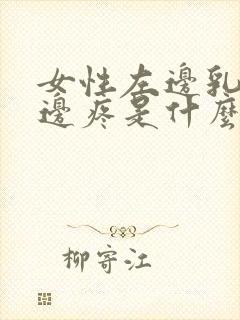 女性左邊乳
邊疼是什麼
柳寄江